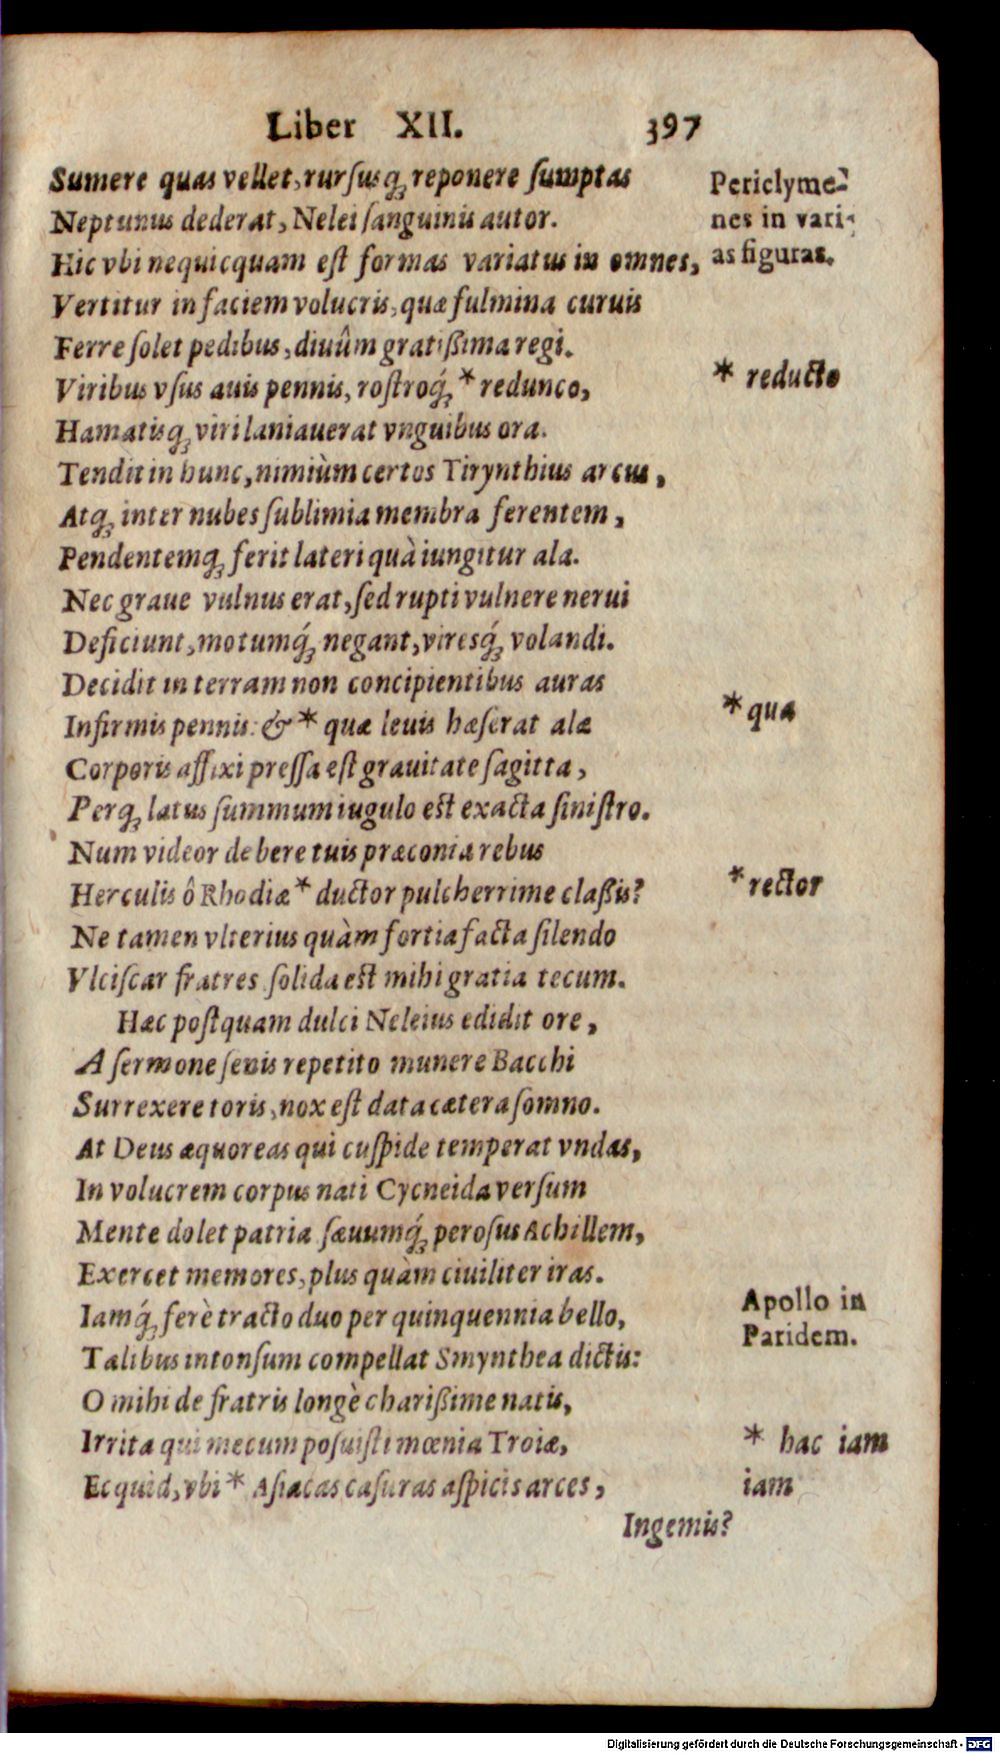 Liber XII. 397
Sumere quas vellet, rurſusq́; reponere ſumptas
Neptunus dederat, Nelei ſanguinis autor.
Hic vbi nequicquam eſt formas variatus in omnes,
Vertitur in faciem volucris, quæ fulmina curuis
Ferre ſolet pedibus, diuûm gratißima regi.
Viribus vſus auis pennis, roſtroq́; * redunco,
Hamatisq; viri laniauerat vnguibus ora.
Tendit in hunc, nimiùm certos Tirynthius arcus,
Atq; inter nubes ſublimia membra ferentem,
Pendentemq; ferit lateri quà iungitur ala.
Nec graue vulnus erat, ſed rupti vulnere nerui
Deficiunt, motumq́; negant, viresq́; volandi.
Decidit in terram non concipientibus auras
Infirmis pennis: & * quæ leuis hæſerat alæ
Corporis affixi preſſa eſt grauitate ſagitta,
Perq; latus ſummum iugulo eſt exacta ſiniſtro.
Num videor debere tuis præconia rebus
Herculis ô Rhodiæ * ductor pulcherrime claßis?
Ne tamen vlterius quàm fortia facta ſilendo
Vlciſcar fratres ſolida eſt mihi gratia tecum.
Hæc poſtquam dulci Neleius edidit ore,
A ſermone ſenis repetito munere Bacchi
Surrexere toris, nox eſt data cætera ſomno.
At Deus æquoreas qui cuſpide temperat vndas,
In volucrem corpus nati Cycneida verſum
Mente dolet patria ſæuumq́; peroſus Achillem,
Exercet memores, plus quàm ciuiliter iras.
Iamq́; ferè tracto duo per quinquennia bello,
Talibus intonſum compellat Smynthea dictis:
O mihi de fratris longè charißime natis,
Irrita qui mecum poſuiſti mœnia Troiæ,
Ecquid, vbi * Aſiacas caſuras aſpicis arces,
Ingemis?
Periclyme-
nes in vari-
as figuras.
* reducto
* qua
* rector
Apollo in
Paridem.
* hac iam
iam
Digitalisierung gefördert durch die Deutsche Forschungsgemeinschaft - DFG